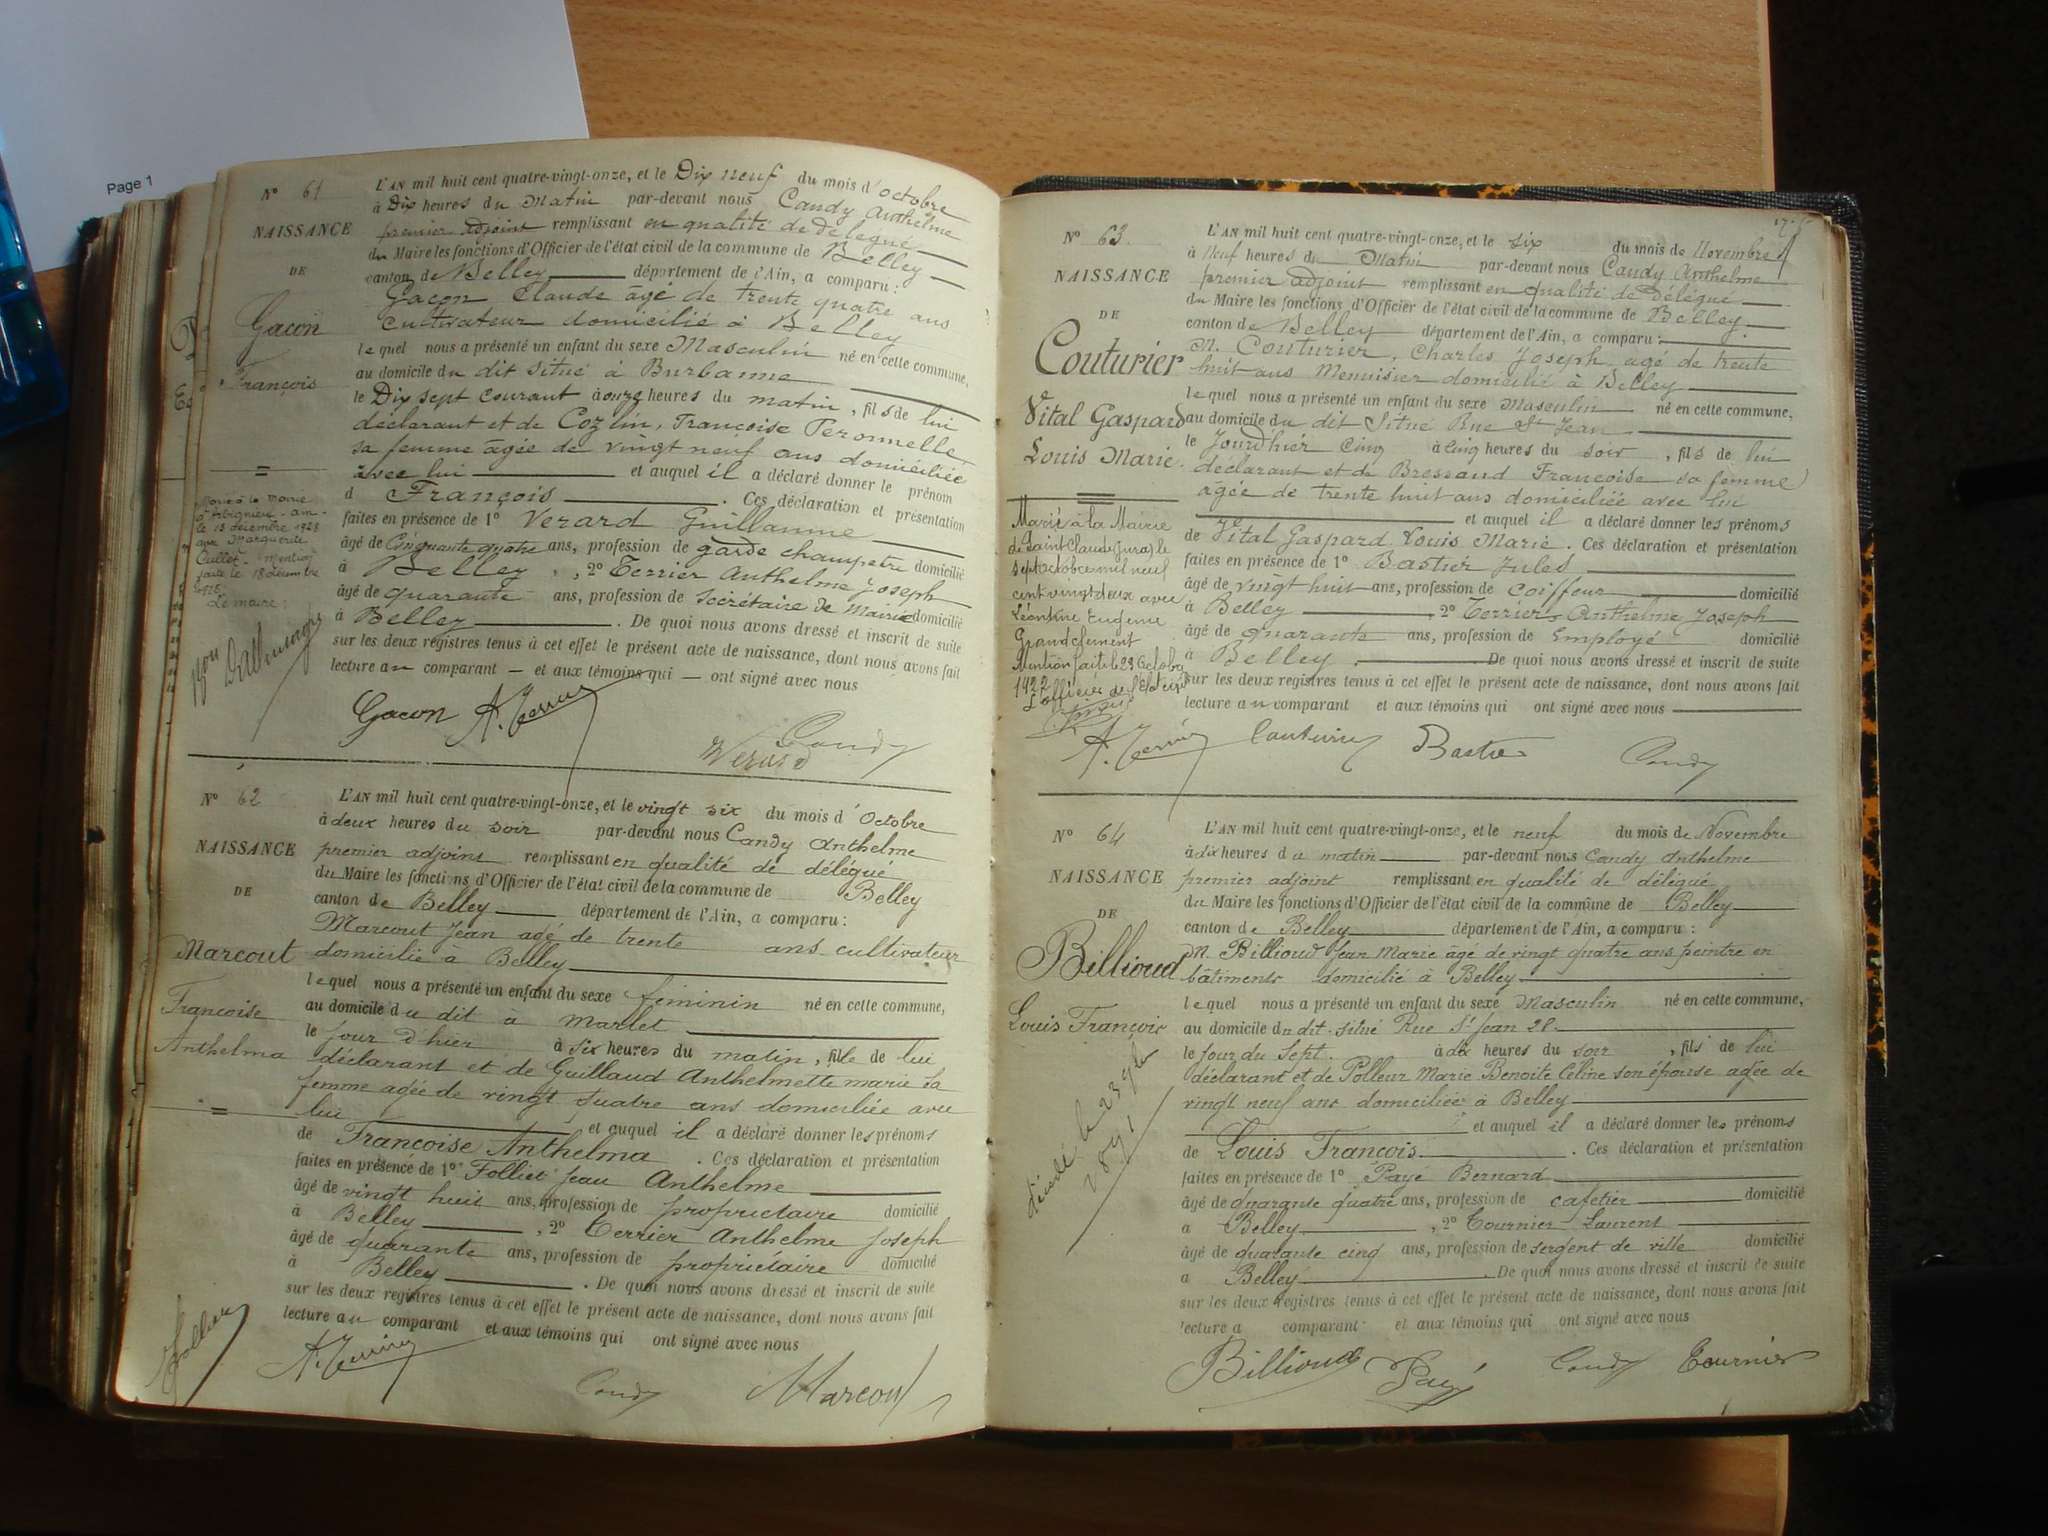 Page 1
N° 61
NAISSANCE
DE
Gacon
François
L'AN mil huit cent quatre-vingt-onze, et le Dix neuf du mois d'octobre
à Dix heures du Matin par-devant nous Candy Anthelme
premier adjoint remplissant en qualité de délégué
du Maire les fonctions d'Officier de l'état civil de la commune de Belley
canton de Belley département de l'Ain, a comparu :
Gacon Claude âgé de trente quatre ans
cultivateur domicilié à Belley
lequel nous a présenté un enfant du sexe Masculin né en cette commune,
au domicile du dit situé à Burbanne
le Dix sept courant à onze heures du matin, fils de lui
déclarant et de Cozlin, Françoise Peronnelle
sa femme âgée de vingt neuf ans domiciliée
avec lui et auquel il a déclaré donner le prénom
d François. Ces déclaration et présentation
faites en présence de 1° Verard Guillaume
âgé de Cinquante quatre ans, profession de garde champetre domicilié
à Belley, 2° Terrier Anthelme Joseph
âgé de quarante ans, profession de Secrétaire de Mairie domicilié
à Belley. De quoi nous avons dressé et inscrit de suite
sur les deux registres tenus à cet effet le présent acte de naissance, dont nous avons fait
lecture au comparant et aux témoins qui ont signé avec nous
Marié à la mairie
le 13 décembre 1923
avec Marguerite
Cullet. Mention
faite le 18 décembre
Le maire:
Gacon A. Terrier
Verard Candy
N° 62
NAISSANCE
DE
Marcout
Françoise
Anthelma
L'AN mil huit cent quatre-vingt-onze, et le vingt six du mois d'Octobre
à deux heures du soir par-devant nous Candy Anthelme
premier adjoint remplissant en qualité de délégué
du Maire les fonctions d'Officier de l'état civil de la commune de Belley
canton de Belley département de l'Ain, a comparu :
Marcout Jean agé de trente ans cultivateur
domicilié à Belley
lequel nous a présenté un enfant du sexe féminin né en cette commune,
au domicile du dit à Marlet
le jour d'hier à six heures du matin, fille de lui
déclarant et de Guillaud Anthelmette marie sa
femme agée de vingt quatre ans domiciliée avec
lui et auquel il a déclaré donner les prénoms
de Françoise Anthelma. Ces déclaration et présentation
faites en présence de 1° Folliet Jean Anthelme
âgé de vingt huit ans, profession de propriétaire domicilié
à Belley, 2° Terrier Anthelme Joseph
âgé de quarante ans, profession de propriétaire domicilié
à Belley. De quoi nous avons dressé et inscrit de suite
sur les deux registres tenus à cet effet le présent acte de naissance, dont nous avons fait
lecture au comparant et aux témoins qui ont signé avec nous
A. Terrier Candy Marcout
N° 63
NAISSANCE
DE
Couturier
Vital Gaspard
Louis Marie
L'AN mil huit cent quatre-vingt-onze, et le six du mois de Novembre
à Neuf heures du Matin par-devant nous Candy Anthelme
premier adjoint remplissant en qualité de délégué
du Maire les fonctions d'Officier de l'état civil de la commune de Belley
canton de Belley département de l'Ain, a comparu :
M. Couturier, Charles Joseph agé de trente
huit ans Menuisier domicilié à Belley
lequel nous a présenté un enfant du sexe masculin né en cette commune,
au domicile du dit situé Rue St Jean
le jourd'hier cinq à cinq heures du soir, fils de lui
déclarant et de Bressand Françoise sa femme
âgée de trente huit ans domiciliée avec lui
et auquel il a déclaré donner les prénoms
de Vital Gaspard Louis Marie. Ces déclaration et présentation
faites en présence de 1° Bastier Jules
âgé de vingt huit ans, profession de coiffeur domicilié
à Belley, 2° Terrier Anthelme Joseph
âgé de quarante ans, profession de Employé domicilié
à Belley. De quoi nous avons dressé et inscrit de suite
sur les deux registres tenus à cet effet le présent acte de naissance, dont nous avons fait
lecture au comparant et aux témoins qui ont signé avec nous
Marié à la Mairie
de Saint Claude (Jura) le
sept octobre mil neuf
cent vingt deux avec
Léontine Eugénie
Grandclément
Mention faite le 23 Octobre
1922
L'officier de l'Etat civil
A. Terrier Couturier Bastier Candy
N° 64
NAISSANCE
DE
Billioud
Louis François
L'AN mil huit cent quatre-vingt-onze, et le neuf du mois de Novembre
à dix heures du matin par-devant nous Candy Anthelme
premier adjoint remplissant en qualité de délégué
du Maire les fonctions d'Officier de l'état civil de la commune de Belley
canton de Belley département de l'Ain, a comparu :
M. Billioud Jean Marie âgé de vingt quatre ans peintre en
bâtiments domicilié à Belley
lequel nous a présenté un enfant du sexe Masculin né en cette commune,
au domicile du dit situé Rue St Jean 28
le jour du Sept. à dix heures du soir, fils de lui
déclarant et de Polleur Marie Benoite Celine son épouse agée de
vingt neuf ans domiciliée à Belley
et auquel il a déclaré donner les prénoms
de Louis François. Ces déclaration et présentation
faites en présence de 1° Payé Bernard
âgé de quarante quatre ans, profession de cafetier domicilié
a Belley, 2° Tournier Laurent
âgé de quarante cinq ans, profession de sergent de ville domicilié
a Belley. De quoi nous avons dressé et inscrit de suite
sur les deux registres tenus à cet effet le présent acte de naissance, dont nous avons fait
lecture a comparant et aux témoins qui ont signé avec nous
décédé le 23 9bre
1891
Billioud Payé Candy Tournier